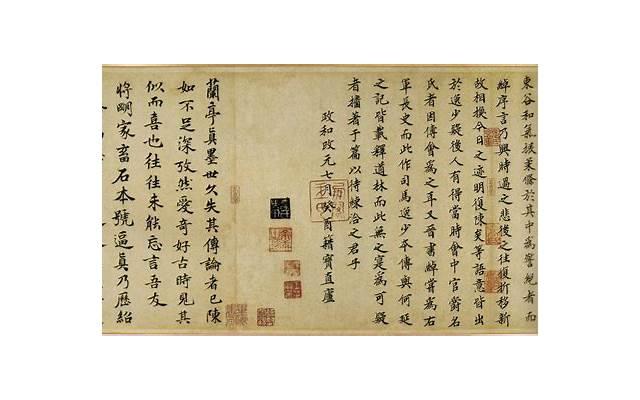 東谷和氣援秉僚於其中為警絕者而
綽序言乃興時過之悲後之往復折移新
故相換今日之迹明復陳矣等語意皆出
於逸少疑後人有得當時會中官爵名
氏者因傅會為之耳又晉書綽嘗為右
軍長史而此作司馬逸少本傳與何延
之記皆載釋道林而此無之寔為可疑
者摭著于篇以待練洽之君子
政和改元七月癸酉籍寶直廬
蘭亭真墨世久失其傳論者已陳
如不足深攷然愛奇好古時見其
似而喜也往往未能忘言吾友
將明家畜石本號逼真乃歷紹